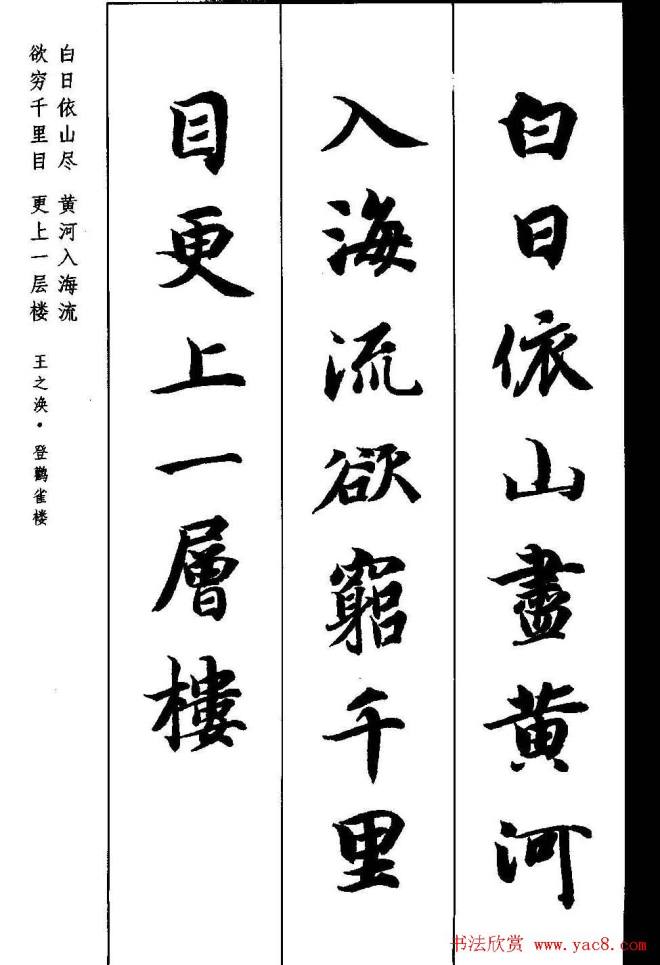 白日依山盡黄河
入海流欲窮千里
目更上一層樓
白日依山尽 黄河入海流
欲穷千里目 更上一层楼
王之涣·登鹳雀楼
书法欣赏 www.yac8.com